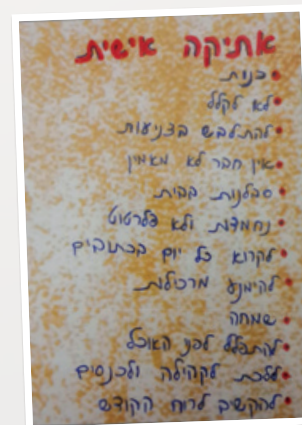 אתיקה אישית
כנות
לא לקלל
להתלבש בצניעות
אין חבר לא מאמין
סבלנות בבית
נחמדות ולא פלרטוט
לקרוא כל יום בכתובים
להימנע מרכילות
שמחה
להתפלל לפני האוכל
ללכת לקהילה ולכנסים
להקשיב לרוח הקודש